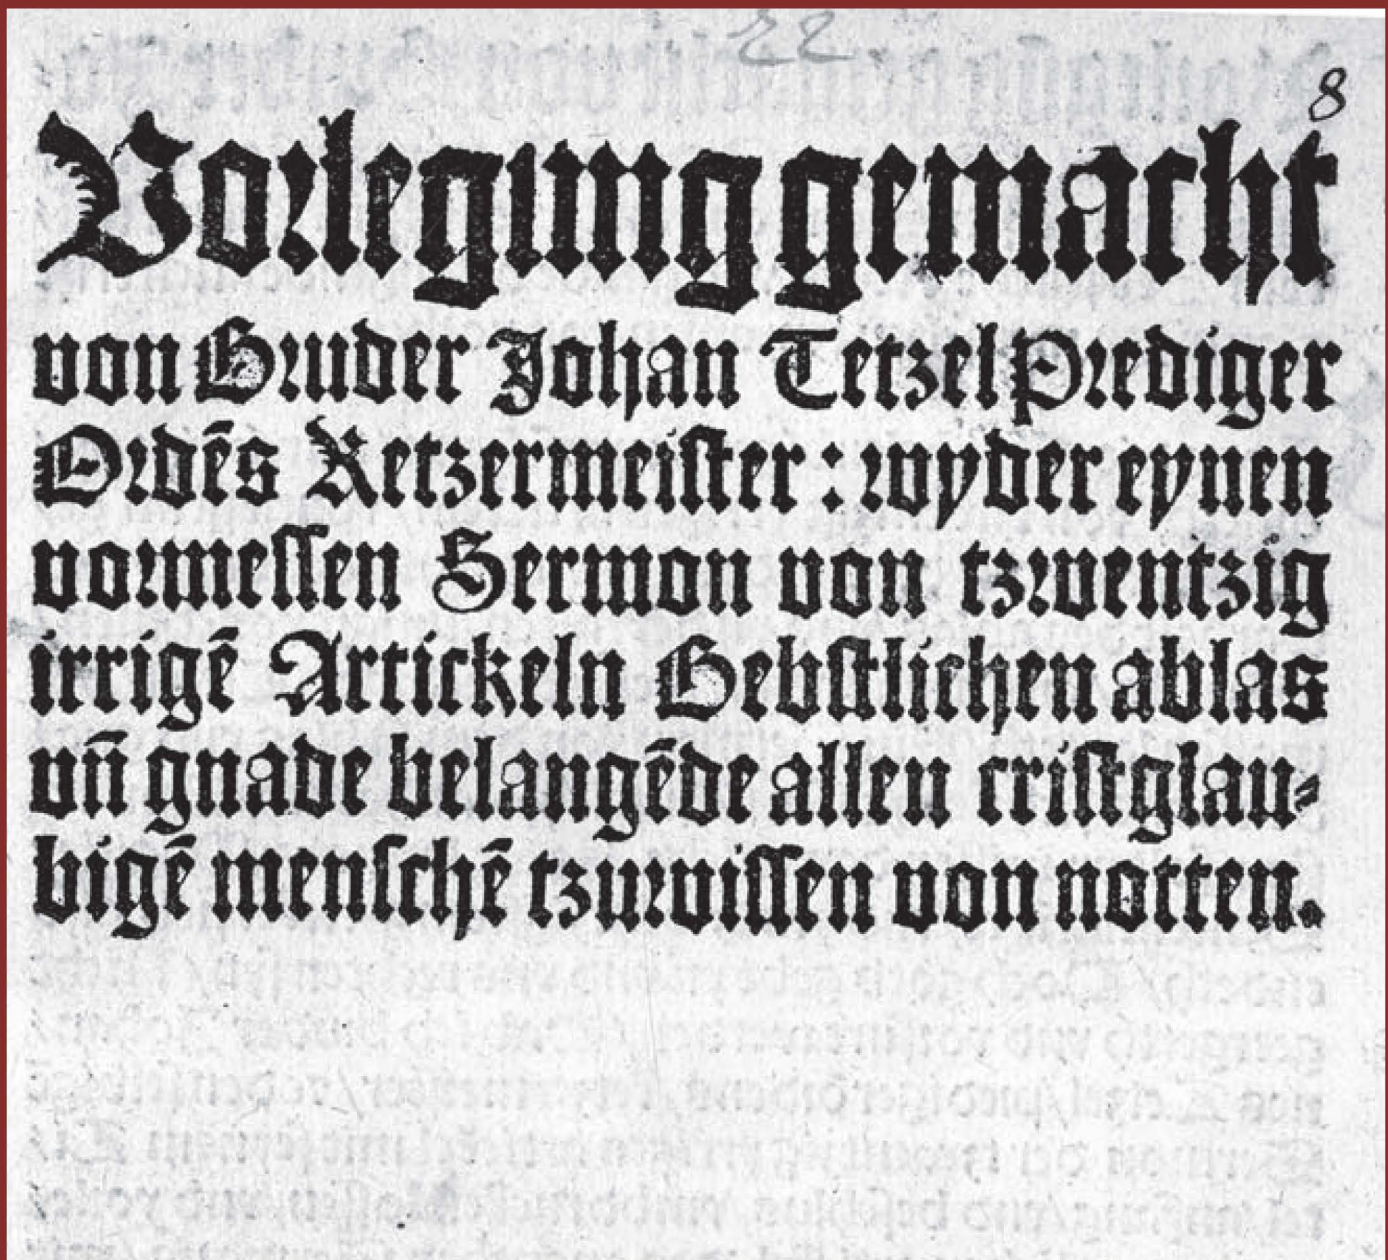 22
8
Vorlegung gemacht
von Bruder Johan Tetzel Prediger
Ordēs Ketzermeister: wyder eynen
vormessen Sermon von tzwentzig
irrigē Artickeln Bebstlichen ablas
vn̄ gnade belangēde allen cristglau⸗
bigē menschē tzuwissen von notten.